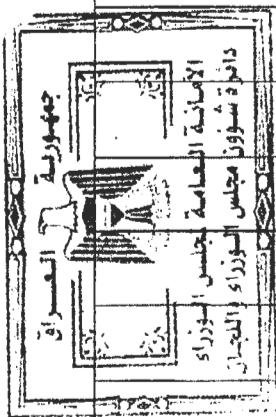 جمهورية العراق
الامانة العامة لمجلس الوزراء
دائرة شؤون مجلس الوزراء واللجان